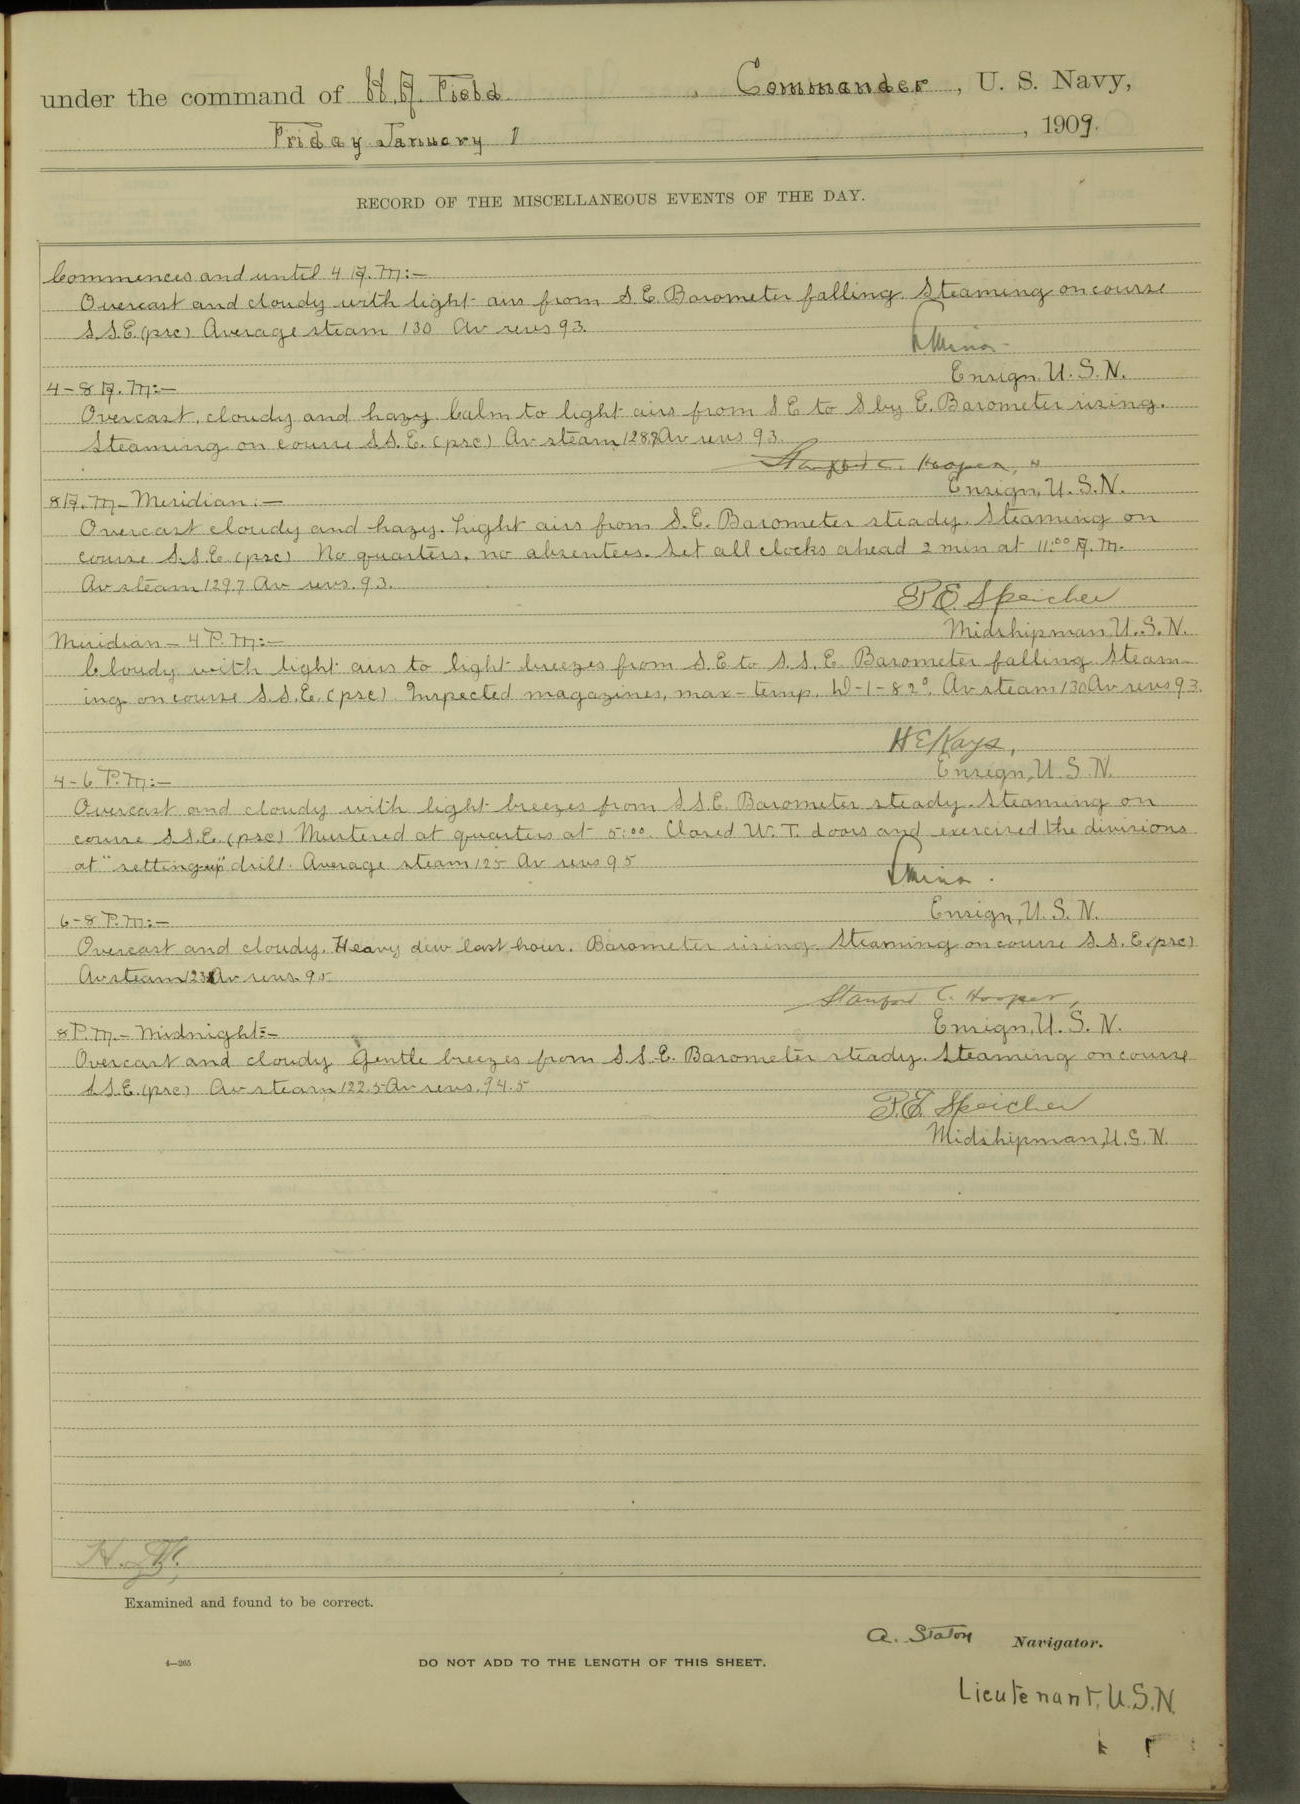 under the command of H. A. Field , Commander , U. S. Navy,
Friday January 1 , 1909.
RECORD OF THE MISCELLANEOUS EVENTS OF THE DAY.
Commences and until 4 A. M:—
Overcast and cloudy with light airs from S. E. Barometer falling. Steaming on course
S.S.E. (psc) Average steam 130 Av revs 93.
Ensign, U. S. N.
4 - 8 A. M:—
Overcast, cloudy and hazy. Calm to light airs from S E to S by E. Barometer rising.
Steaming on course S.S.E. (psc) Av steam 128.8 Av revs 93.
Stanford C. Hooper,
Ensign, U. S. N.
8 A. M - Meridian:—
Overcast cloudy and hazy. Light airs from S. E. Barometer steady. Steaming on
course S.S.E. (psc) No quarters, no absentees. Set all clocks ahead 2 min at 11:00 A. M.
Av steam 129.7 Av revs. 93.
P. E. Speicher
Midshipman, U. S. N.
Meridian - 4 P. M:—
Cloudy with light airs to light breezes from S. E to S. S. E. Barometer falling. Steam-
ing on course S.S.E. (psc). Inspected magazines, max-temp. W-1-82°. Av steam 130 Av revs 93.
H E Kays,
Ensign, U. S. N.
4 - 6 P. M:—
Overcast and cloudy with light breezes from S.S.E. Barometer steady. Steaming on
course S.S.E. (psc) Mustered at quarters at 5:00. Closed W. T. doors and exercised the divisions
at "setting-up" drill. Average steam 125 Av revs 95
Ensign, U. S. N.
6 - 8 P. M:—
Overcast and cloudy. Heavy dew last hour. Barometer rising. Steaming on course S. S. E. (psc)
Av steam 123 Av revs. 95
Stanford C. Hooper,
Ensign, U. S. N.
8 P. M. - Midnight:—
Overcast and cloudy Gentle breezes from S. S. E. Barometer steady. Steaming on course
S.S.E. (psc) Av steam 122.5 Av revs. 94.5
P. E. Speicher
Midshipman, U. S. N.
Examined and found to be correct.
A. Staton Navigator.
4—265
DO NOT ADD TO THE LENGTH OF THIS SHEET.
Lieutenant, U.S.N.